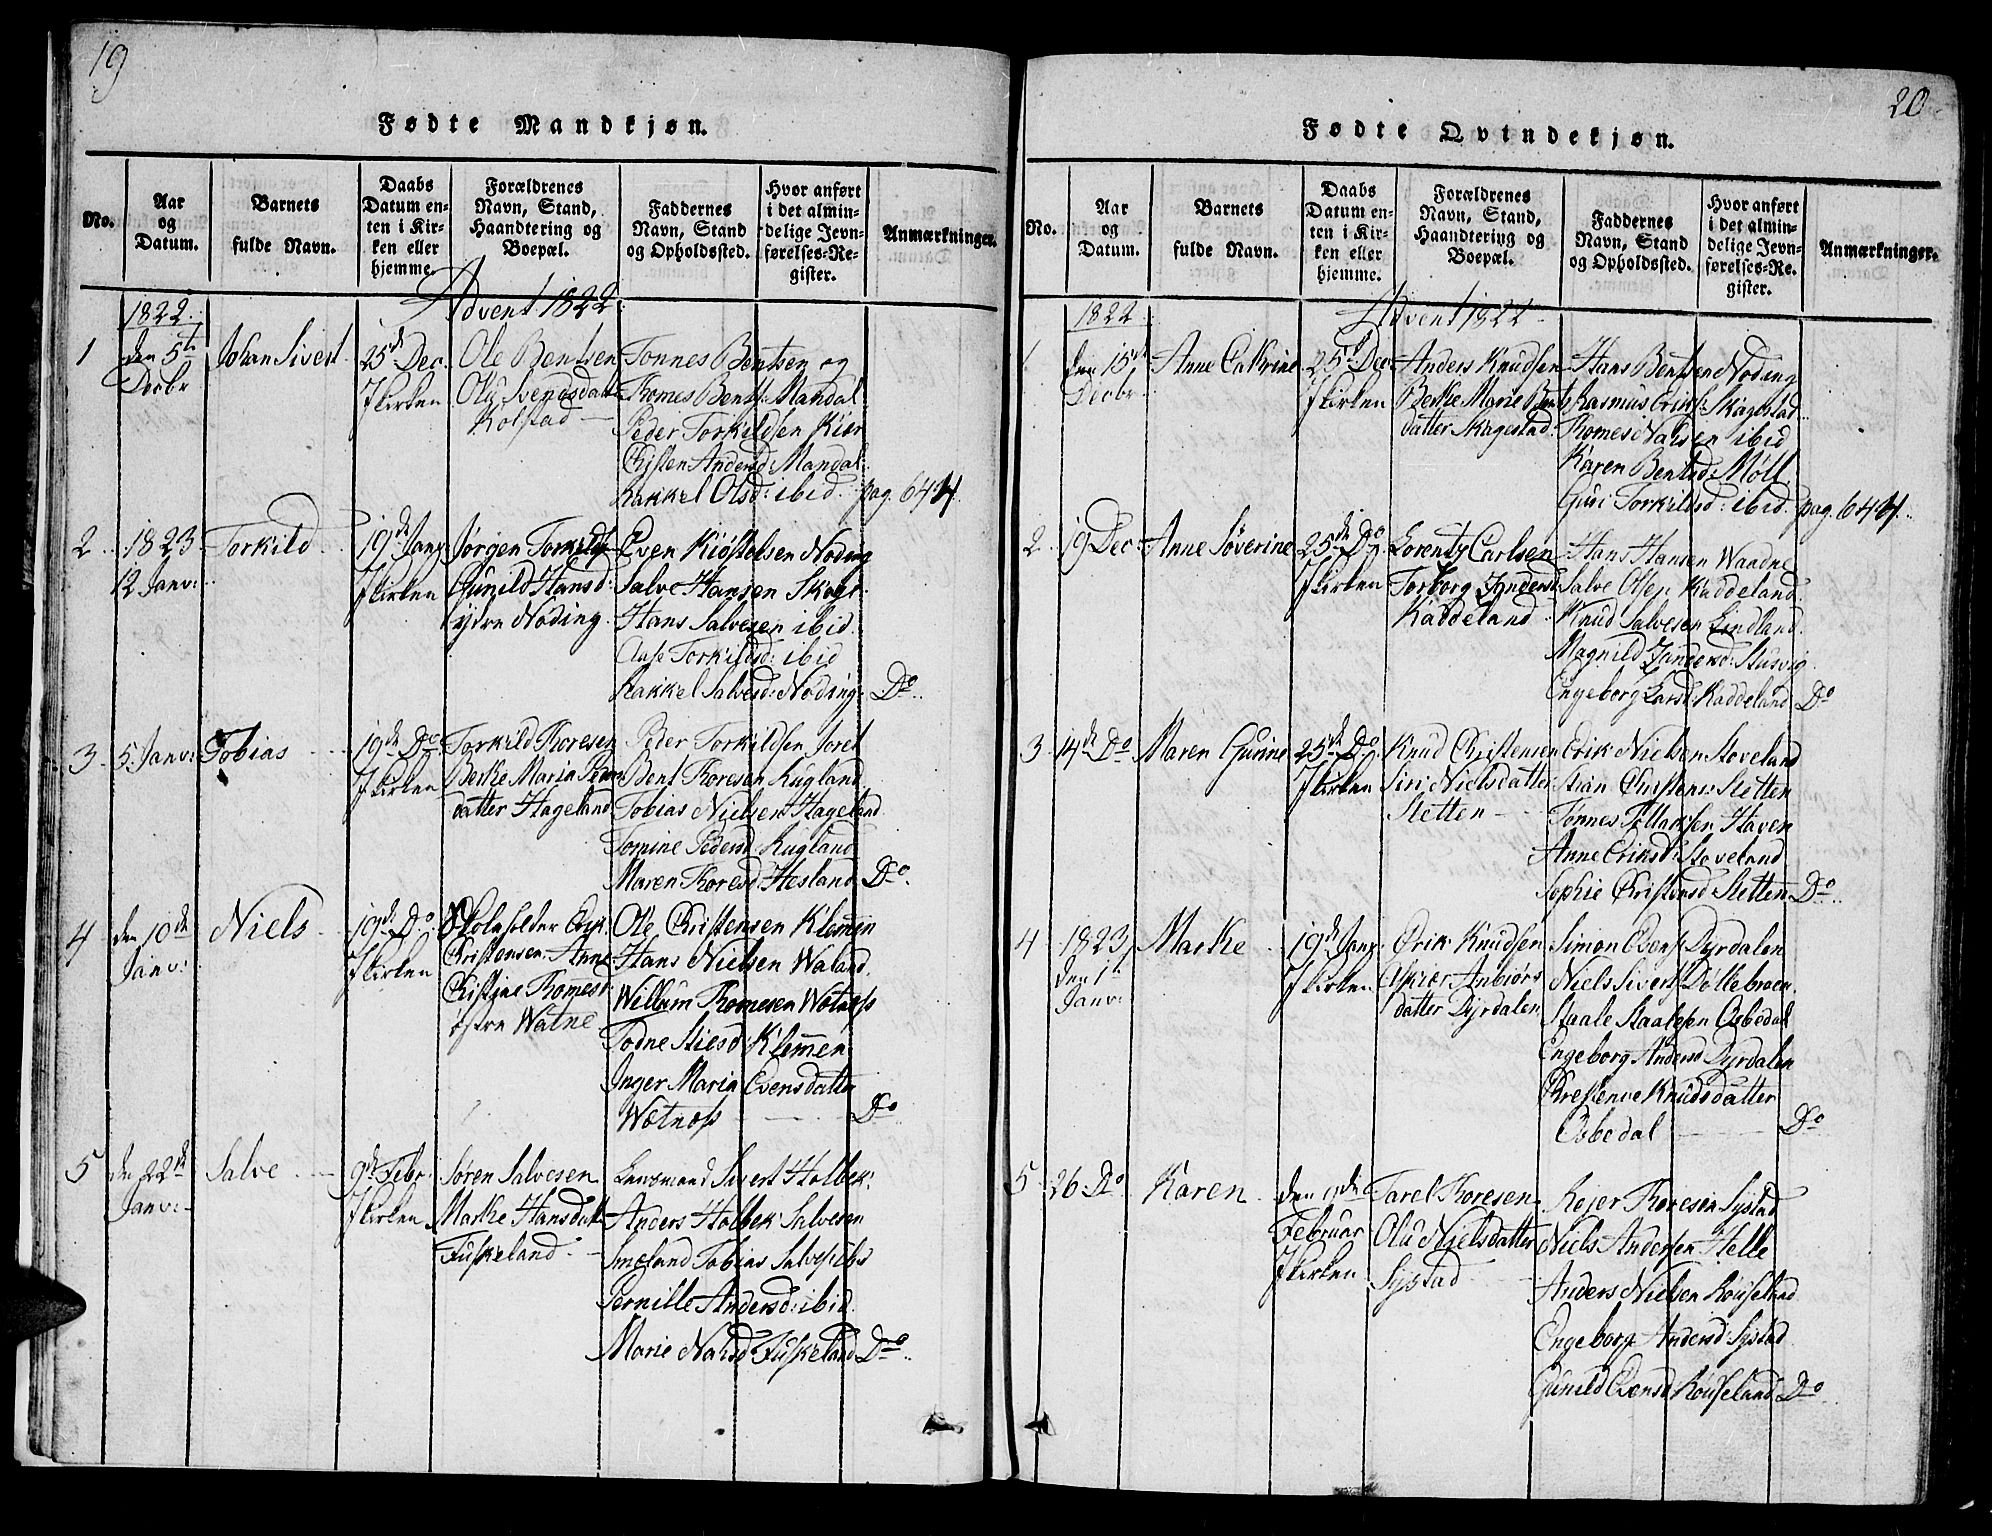 19
Fødte Mandkjøn.
No.
Aar
og
Datum.
Barnets
fulde Navn.
Daabs
Datum en-
ten i Kir-
ken eller
hjemme.
Forældrenes
Navn, Stand,
Haandtering og
Boepæl.
Faddernes
Navn, Stand
og Opholdssted.
Hvor anført
i det almin-
delige Jevn-
førelses-Re-
gister.
Anmærkninger.
Advent 1822.
1
1822.
den 5te
Decbr
Johan Sivert
25de Dec.
I Kirken
Ole Bentsen
Olu Svendsdatt
Kolstad
Tonnes Bentsen og
Thomes Bents: Mandal
Peder Torkildsen Kier
Christen Andersd: Mandal:
Rakkel Olsd: ibid.
pag. 644.
2
1823
12 Janv:
Torkild
19de Janv
I Kirken
Jørgen Torkilds
Gunild Hansd:
ydre Noding.
Even Kiøstelsen Noding
Salve Hansen
Hans Salvesen ibid.
Aase Torkildsd: ibid
Rakkel Salvesd: Noding.
Do
3
5 Janv:
Tobias
19de Do
I Kirken
Torkild Thoresen
Berthe Maria Peders
datter Hageland
Peder Torkildsen
Bent Thoresen Rugland
Tobias Nielsen Hageland
Tomine Pedersd: Rugland
Maren Thoresd Hesland
Do.
4
den 10de
Janv:
Niels
19de Do
I Kirken
Skoleholder Erik
Christensen. Anne
Christine Thomesd
Watne
Ole Christensen Klemmen
Hans Nielsen Waland
Willum Thomesen Wotness
Todne Stiesd Klemmen
Inger Maria Evensdatter
Wotness
Do
5
den 22de
Janv:
Salve
9de Febr
I Kirken
Søren Salvesen
Marthe Hansdatt
Fuskeland.
Lensmand Sivert Holbek:
Anders Holbek: Salvesen
Smeland Tobias Salves: ibd
Pernille Andersd: ibid.
Marie Fuskeland
Do
20
Fødte Qvindekjøn.
No.
Aar
og
Datum.
Barnets
fulde Navn.
Daabs
Datum en-
ten i Kir-
ken eller
hjemme.
Forældrenes
Navn, Stand,
Haandtering og
Boepæl.
Faddernes
Navn, Stand
og Opholdssted.
Hvor anført
i det almin-
delige Jevn-
førelses-Re-
gister.
Anmærkninger.
Advent 1822
1
1822
den 15de
Decbr
Anne Cathrine
25de Dec
I Kirken
Anders Knudsen
Berthe Marie Bents
datter Skagestad.
Hans Bentsen Noding
Rasmus Eriks: Skagestad
Thomes ibid
Karen Bentsd: Møll
Guri Torkildsd ibid.
pag. 644.
2
19 Dec:
Anne Søverine
25de Do
I Kirken
Lorentz Carlsen
Torborg
Kaddeland
Hans Hansen Wandne
Salve Olsen Kaddeland
Knud Salvesen Lindland
Magnild
Engeborg Larsd: Kaddeland
Do
3
14de Do
Maren Gurine
25de Do
I Kirken
Knud Christensen
Siri Nielsdatter
Sletten
Erik Nielsen Stoveland
Stian Christens: Sletten
Tønnes Tellaksen Haven
Anne Eriksd: Stoveland
Sophie Christensd Sletten
Do
4
1823
den 1te
Janv:
Marthe
19de Janv.
I Kirken
Erik Knudsen
Asbiørns
datter Dyrdalen
Simon Evens: Dyrdalen
Niels Siverts Døllebroen
Staale Staalesen Osbedal
Engeborg Andersd Dyrdalen
Christenve Knudsdatter
Osbedal
Do
5
26 Do.
Karen
den 9de
Februar
I Kirken
Tarel Thoresen
Olu Nielsdatter
Systad
Rejer Thoresen Systad
Niels Andersen Helle
Anders Nielsen Røusseland
Engeborg Andersd: Systad
Gunild Evensd: Røusseland
Do